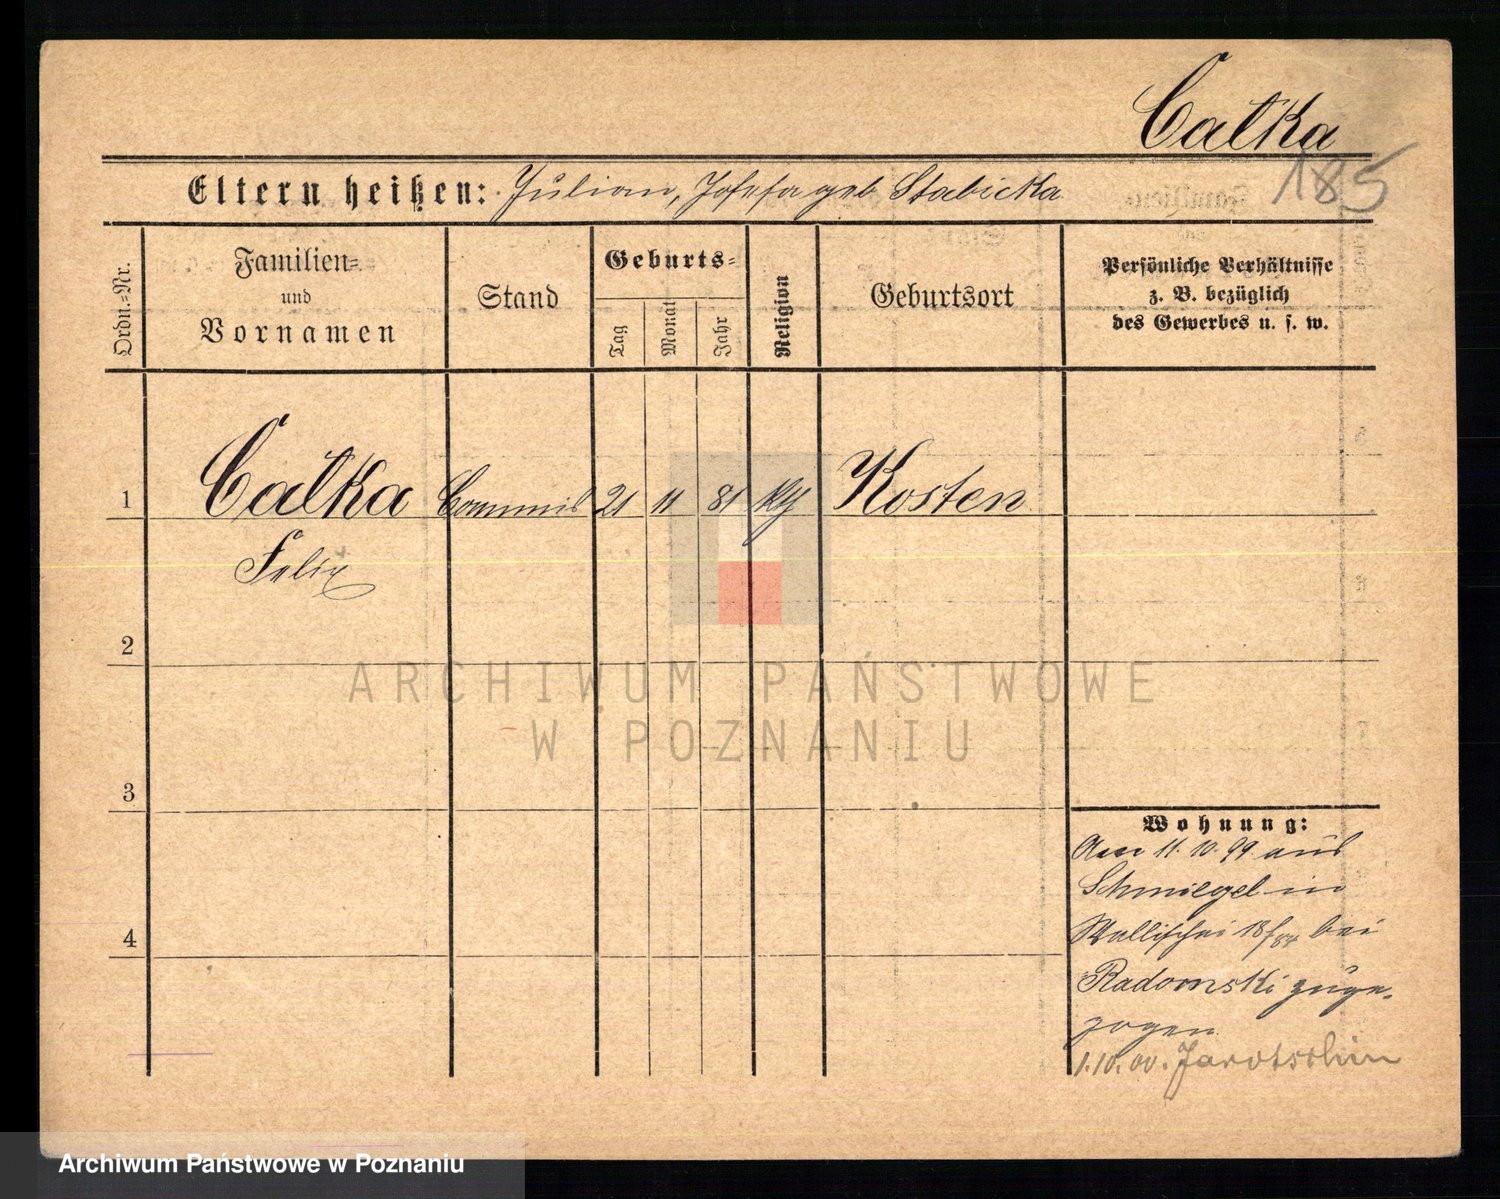 Całka
185
Eltern heißen: Julian, Josefa geb Stabicka
Ordn.=Nr.
Familien=
und
Vornamen
Stand
Geburts=
Tag
Monat
Jahr
Religion
Geburtsort
Persönliche Verhältnisse
z. B. bezüglich
des Gewerbes u. s. w.
1 Całka Commis 21 11 81 Kosten
Felix
2
ARCHIWUM PAŃSTWOWE
W POZNANIU
3
4
Wohnung:
Am 11. 10. 99 aus
Schmiegel in
Wallischei bei
Radomski zuge-
zogen
1.10.00. Jarotschin
Archiwum Państwowe w Poznaniu